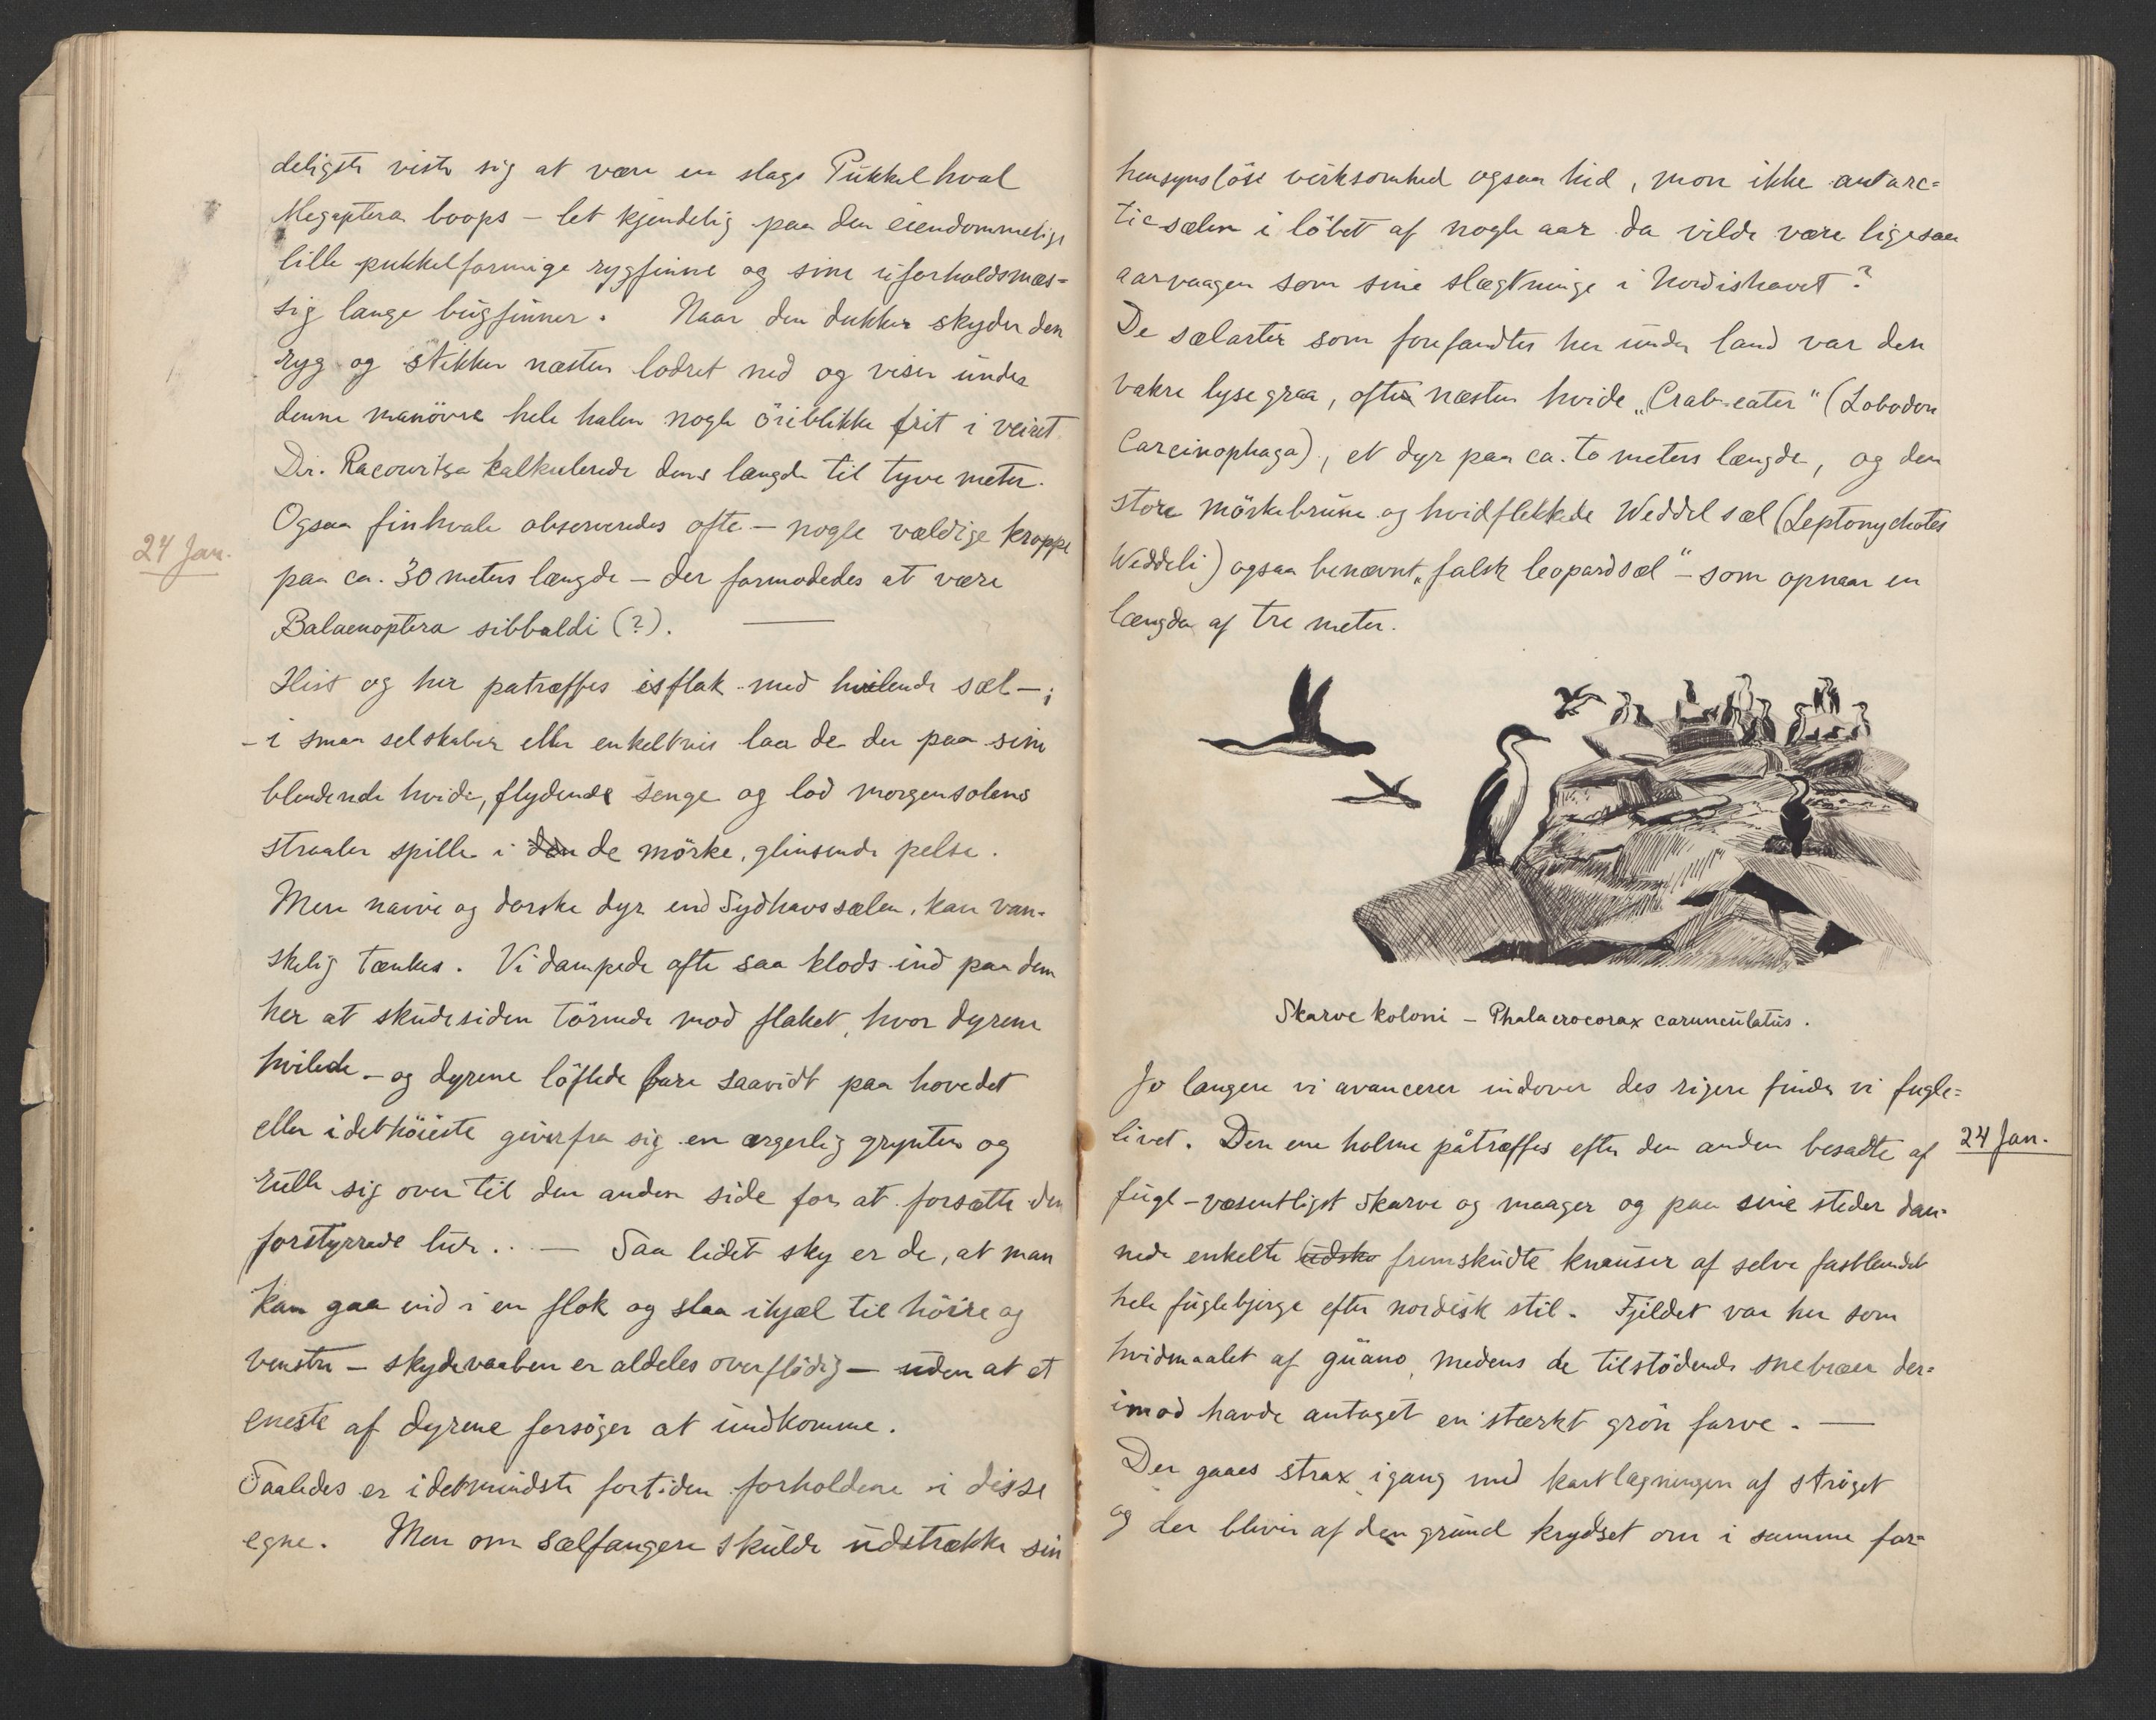 deligste viste sig at være en slags Pukkelhval
Megaptera boops – let kjendelig paa den eiendommelige
lille pukkelformige rygfinne og sine uforholdsmæs=
sig lange bugfinner. Naar den dukker skyder den
ryg og stikker næsten lodret ned og viser under
denne manövre hele halen nogle öieblikke frit i veiret.
Dr. Racowitza kalkulerede dens længde til tyve meter.
Ogsaa finhvale observeredes ofte – nogle vældige kroppe
24 Jan.
paa ca. 30 meters længde – der formodedes at være
Balaenoptera sibbaldi (?). ——
Hist og her patræffes isflak med hvilende sæl –;
– i smaa selskaber eller enkeltvis laa de der paa sine
blendende hvide, flydende senge og lod morgensolens
straaler spille i den de mörke, glinsende pelse.
Mere naive og dorske dyr end Sydhavssælen, kan van-
skelig tænkes. Vi dampede ofte saa klods ind paa dem
her at skudesiden törnede mod flaket, hvor dyrene
hvilede – og dyrene löftede bare saavidt paa hovedet
eller idethöieste giver fra sig en ærgerlig grynten og
rulle sig over til den anden side for at forsætte den
forstyrrede lur. . — Saa lidet sky er de, at man
kan gaa ind i en flok og slaa ihjæl til höire og
venstre – skydevaaben er aldeles overflödig – uden at et
eneste af dyrene forsöger at undkomme.
Saaledes er idetmindste fortiden forholdene i disse
egne. Men om sælfangere skulde udstrække sin
hensynslöse virksomhed ogsaa hid, mon ikke antarc=
tic sælen i löbet af nogle aar da vilde være ligesaa
aarvaagen som sine slægtninge i Nordishavet?
De sælarter som forefandtes her under land var den
vakre lyse graa, ofte næsten hvide „Crab-eater" (Lobodon
Carcinophaga), et dyr paa ca. to meters længde, og den
store mörkebrune og hvidflekkede Weddel sæl (Leptonychotes
Weddeli) ogsaa benævnt „falsk leopardsæl" – som opnaar en
længde af tre meter.
Skarve koloni – Phalacrocorax carunculatus.
Jo længere vi avancerer indover des rigere finder vi fugle=
livet. Den ene holme påtræffes efter den anden besadte af
24 Jan.
fugl – væsentligst Skarve og maager og paa sine steder dan-
nede enkelte udsko fremskudte knauser af selve fastlandet
hele fuglebjerge efter nordisk stil. Fjeldet var her som
hvidmaalet af guano, medens de tilstödende snebræer der=
imod havde antaget en stærkt grön farve. —
Der gaaes strax igang med kartlægningen af ströget
og der bliver af den grund krydset om i samme far=